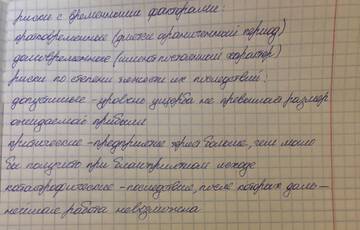 риски с временными факторами:
кратковременные (риски ограниченный период)
долговременные (имеют постоянный характер)
риски по степени тяжести их последствий:
допустимые - уровень ущерба не превышает размер
ожидаемой прибыли
критические - предприятие теряет больше, чем могло
бы получить при благоприятном исходе
катастрофические - последствия, после которых даль-
нейшая работа невозможна